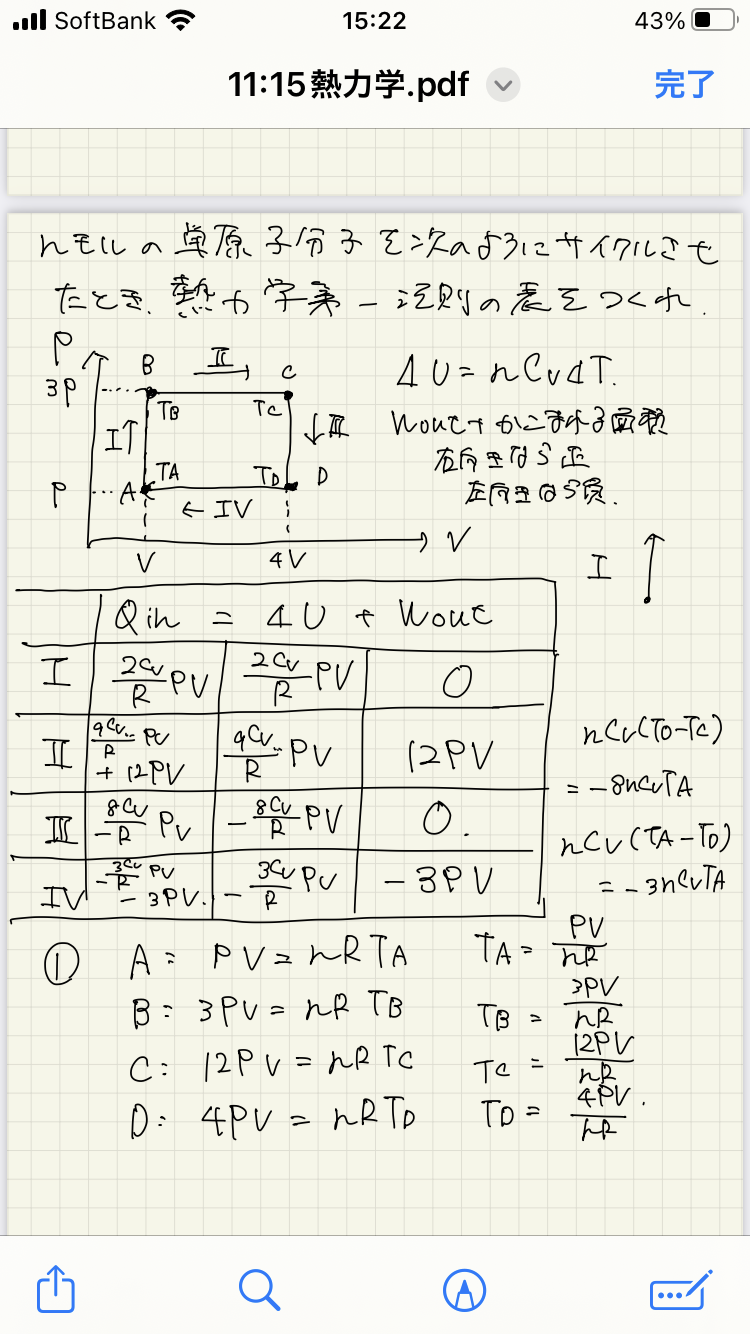 SoftBank 15:22 43%
11:15熱力学.pdf 完了
nモルの単原子分子を次のようにサイクルさせ
たとき、熱力学第一法則の表をつくれ.
P
3P B II C
TB TC
I III
TA TD
P A D
← IV
V 4V V
ΔU = nCvΔT.
Wout→かこまれる面積
右向きなら正
左向きなら負.
I
Qin = ΔU + Wout
I 2Cv/R PV 2Cv/R PV 0
II 9Cv/R PV + 12PV 9Cv/R PV 12PV
III -8Cv/R PV -8Cv/R PV 0.
IV -3Cv/R PV - 3PV. -3Cv/R PV -3PV
nCv(TD-TC)
= -8nCvTA
nCv(TA-TD)
= -3nCvTA
① A: PV = nRTA TA = PV/nR
B: 3PV = nRTB TB = 3PV/nR
C: 12PV = nRTC TC = 12PV/nR
D: 4PV = nRTD TD = 4PV/nR.